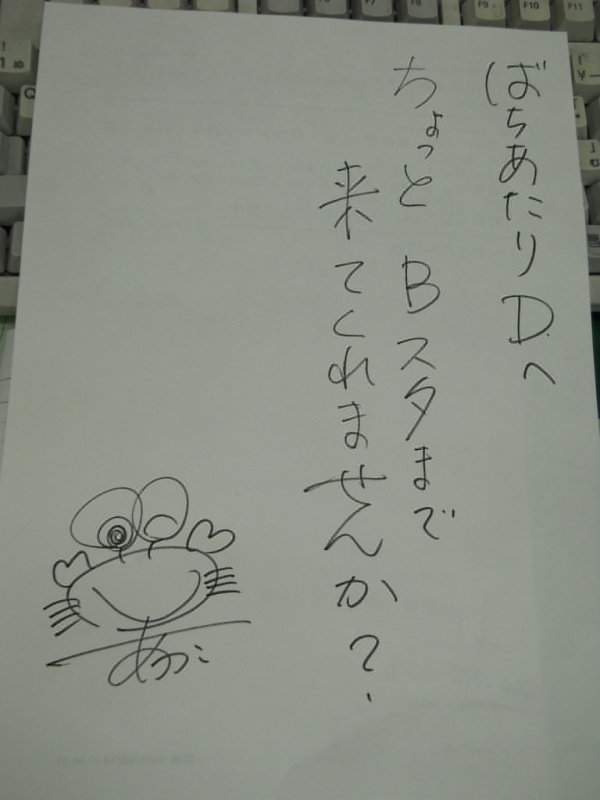 ばちあたりD.へ
ちょっと Bスタまで
来てくれませんか?
あこ